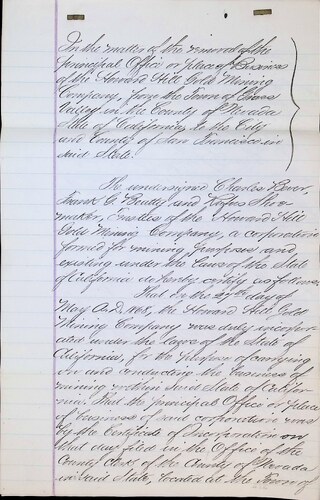 In the matter of the removal of the
principal Office or place of Business
of the Howard Hill Gold Mining
Company, from the Town of Grass
Valley in the County of Nevada
State of California to the City
and County of San Francisco in
said State.
The undersigned Charles
Frank G. Beatty and Rufus Shoe-
maker, Trustees of the Howard Hill
Gold Mining Company, a corporation
formed for mining purposes and
existing under the laws of the State
of California do hereby certify as follows.
That on the 27th day of
May A.D. 1865, the Howard Hill Gold
Mining Company was duly incorpor-
ated under the laws of the State of
California, for the purpose of carrying
on and conducting the business of
mining within said State of Califor-
nia. That the principal Office or place
of business of said corporation was
by the Certificate of Incorporation on
that day filed in the Office of the
County Clerk of the County of Nevada
in said State, located at the Town of